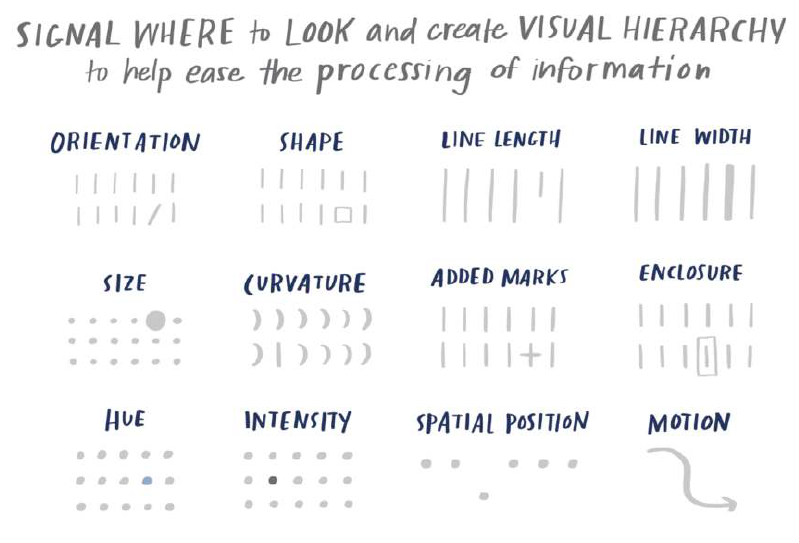 SIGNAL WHERE to LOOK and create VISUAL HIERARCHY
to help ease the processing of information
ORIENTATION
SHAPE
LINE LENGTH
LINE WIDTH
SIZE
CURVATURE
ADDED MARKS
ENCLOSURE
HUE
INTENSITY
SPATIAL POSITION
MOTION